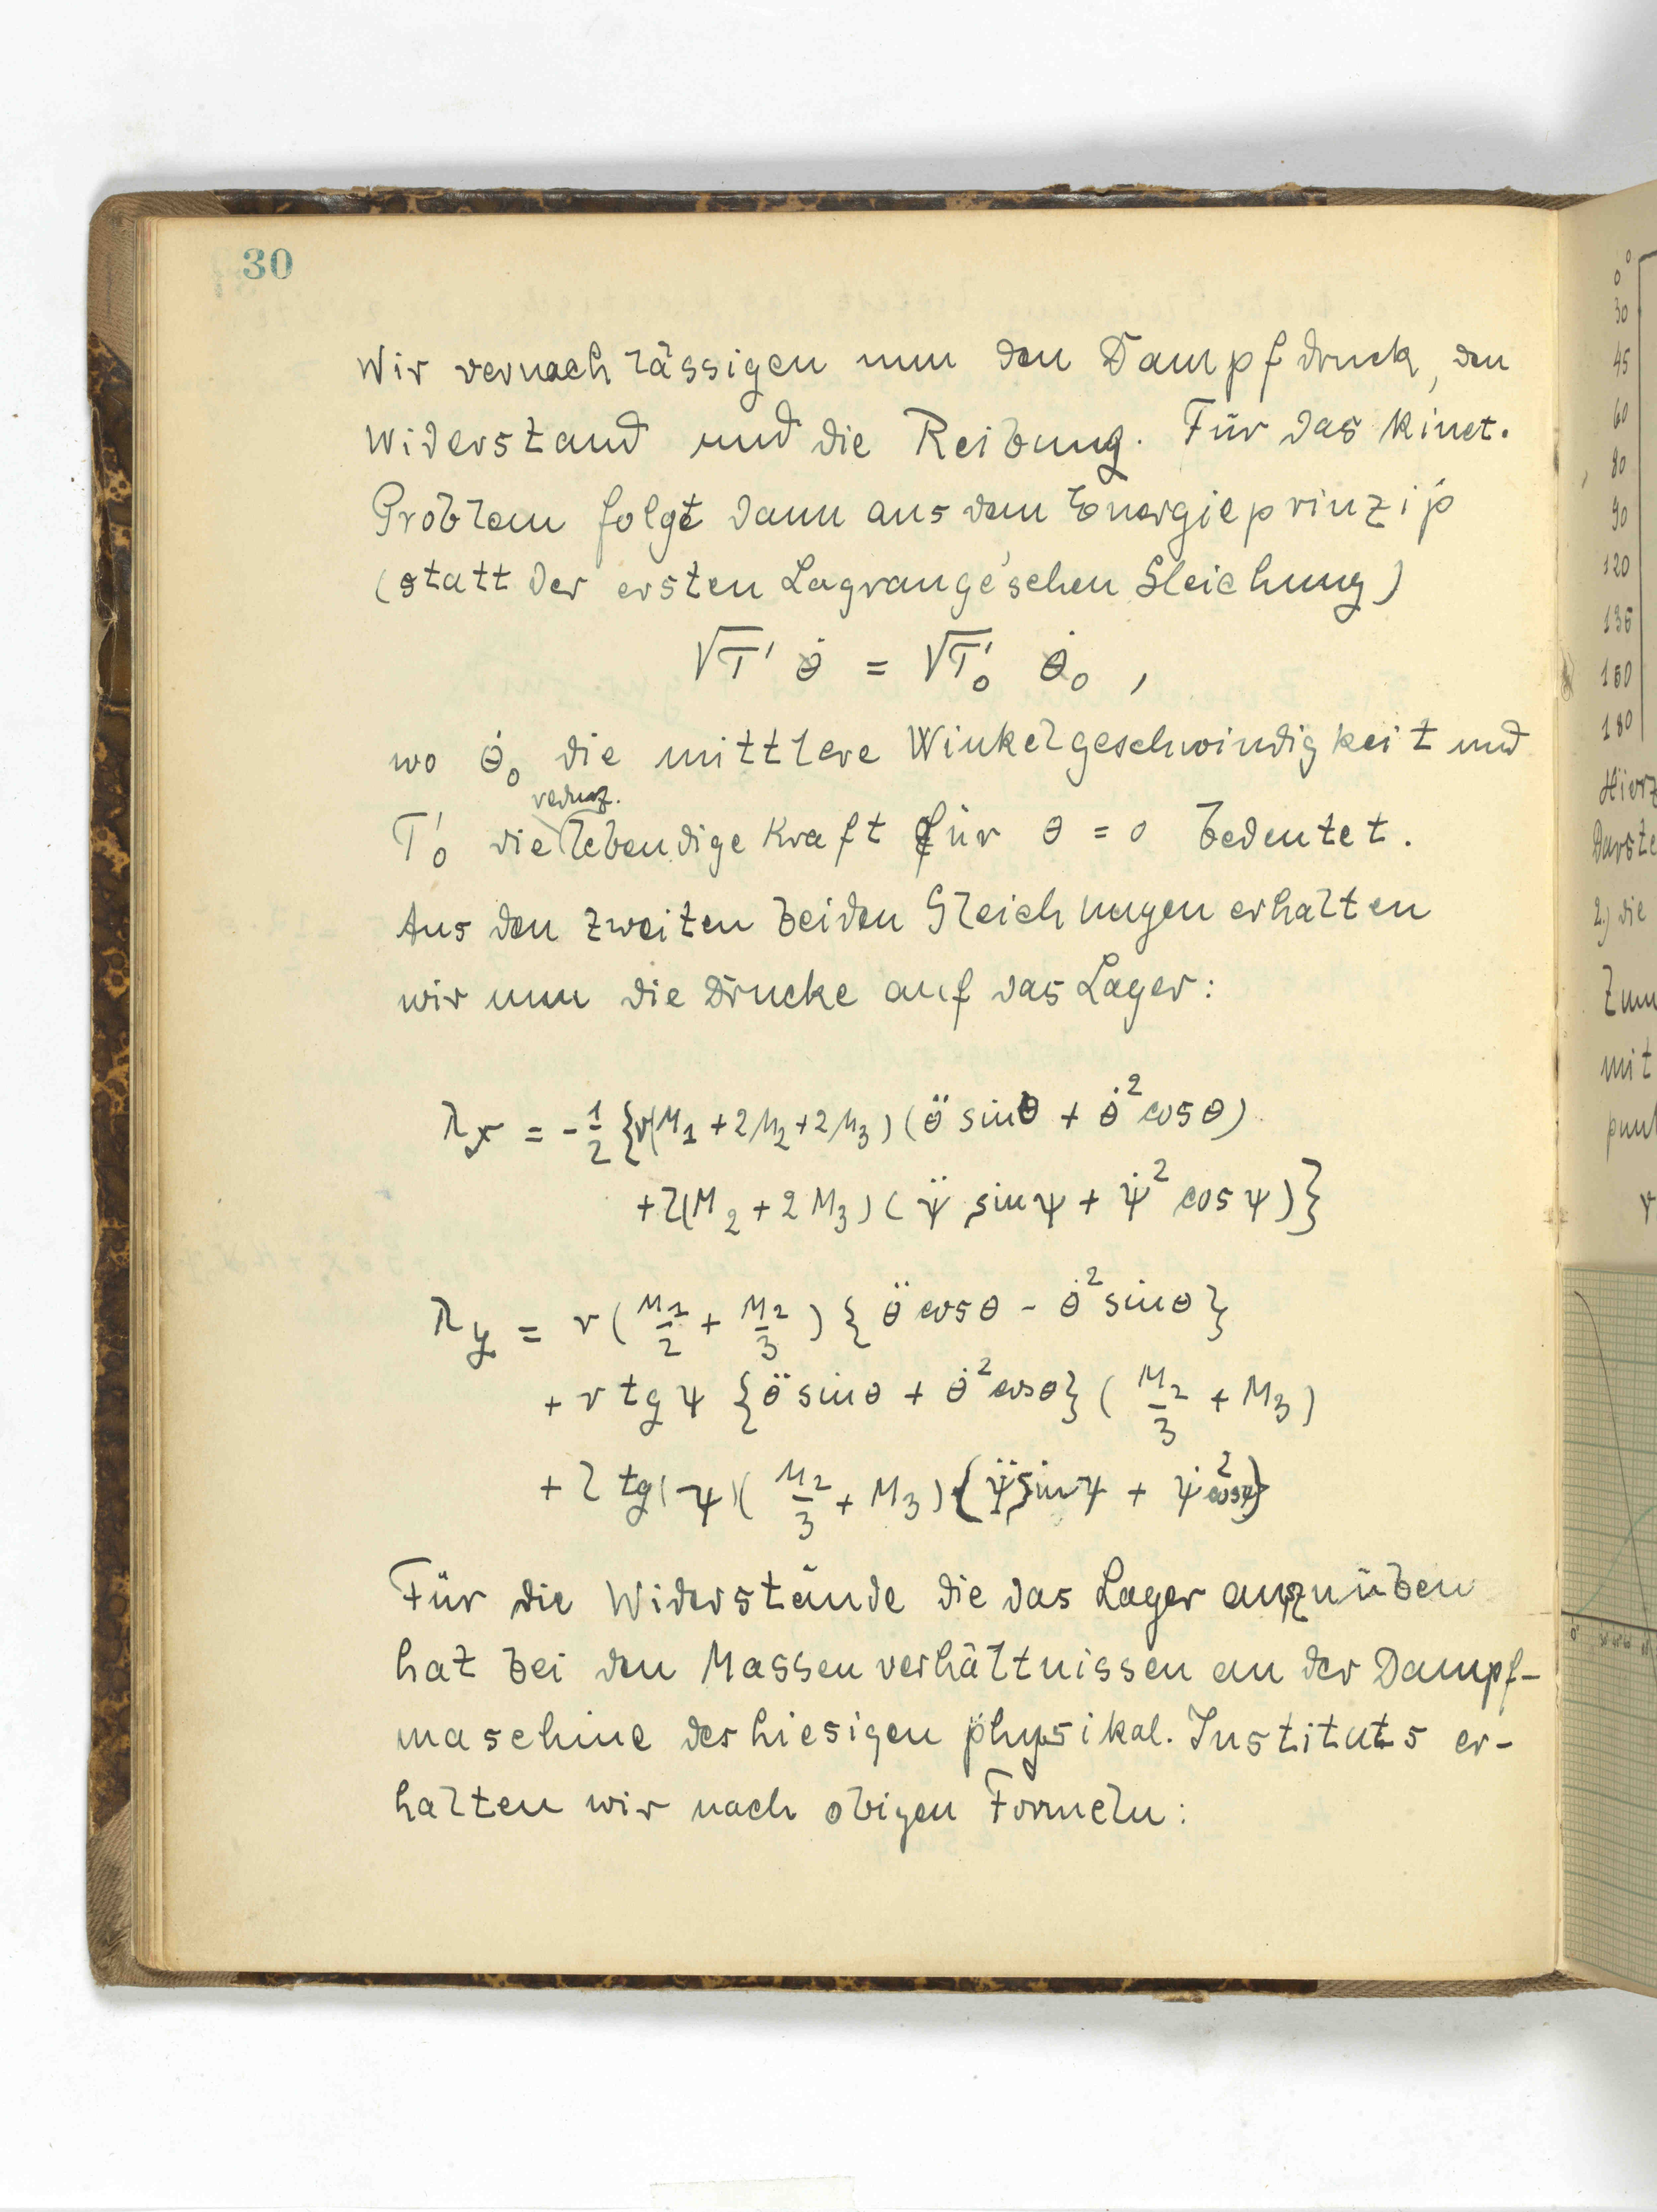 30
Wir vernachlässigen nun den Dampfdruck, den
Widerstand und die Reibung. Für das kinet.
Problem folgt dann aus dem Energieprinzip
(statt der ersten Lagrange'schen Gleichung)
√T' θ̇ = √T'₀ θ̇₀ ,
wo θ̇₀ die mittlere Winkelgeschwindigkeit und
reduz.
T'₀ die lebendige Kraft für θ = 0 bedeutet.
Aus den zweiten beiden Gleichungen erhalten
wir nun die Drucke auf das Lager:
λₓ = - 1/2 {r(M₁ + 2M₂ + 2M₃) (θ̈ sin θ + θ̇² cos θ)
+ l(M₂ + 2M₃) (ψ̈ sin ψ + ψ̇² cos ψ)}
λ_y = r (M₁/2 + M₂/3) {θ̈ cos θ - θ̇² sin θ}
+ r tg ψ {θ̈ sin θ + θ̇² cos θ} (M₂/3 + M₃)
+ l tg(ψ) (M₂/3 + M₃) {ψ̈ sin ψ + ψ̇² cos ψ}
Für die Widerstände die das Lager auszuüben
hat bei den Massenverhältnissen an der Dampf-
maschine des hiesigen physikal. Instituts er-
halten wir nach obigen Formeln:
0
30
45
60
80
90
120
135
150
180
2.) die
mit